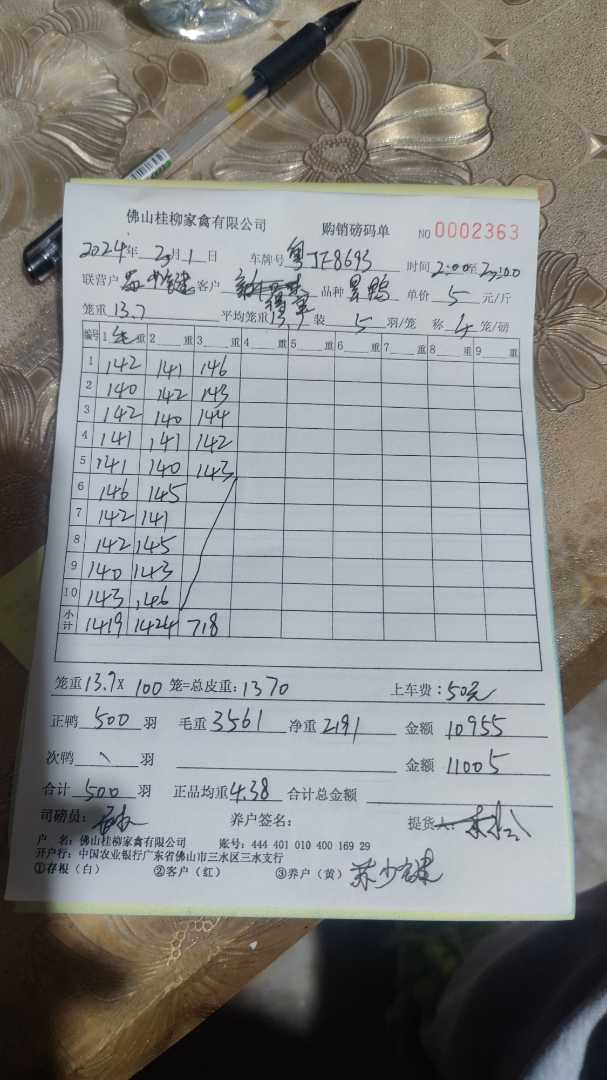 佛山桂柳家禽有限公司 购销磅码单 NO 0002363
2024年 2月 1日 车牌号 粤JF8693 时间 2:00至
联营户 苏少健 客户 品种 单价 5 元/斤
笼重 13.7 平均笼重 13.7 装 5 羽/笼 称 4 笼/磅
编号 1 毛 重 2 重 3 重 4 重 5 重 6 重 7 重 8 重 9 重
1 142 141 146
2 140 142 143
3 142 140 144
4 141 141 142
5 141 140 143
6 146 145
7 142 141
8 142 145
9 140 143
10 143 146
小计 1419 1424 718
笼重 13.7 X 100 笼=总皮重: 1370 上车费: 50元
正鸭 500 羽 毛重 3561 净重 2191 金额 10955
次鸭 \ 羽 金额 11005
合计 500 羽 正品均重 4.38 合计总金额
司磅员: 养户签名: 提货人:
户 名: 佛山桂柳家禽有限公司 账号: 444 401 010 400 169 29
开户行: 中国农业银行广东省佛山市三水区三水支行
①存根（白） ②客户（红） ③养户（黄） 苏少健